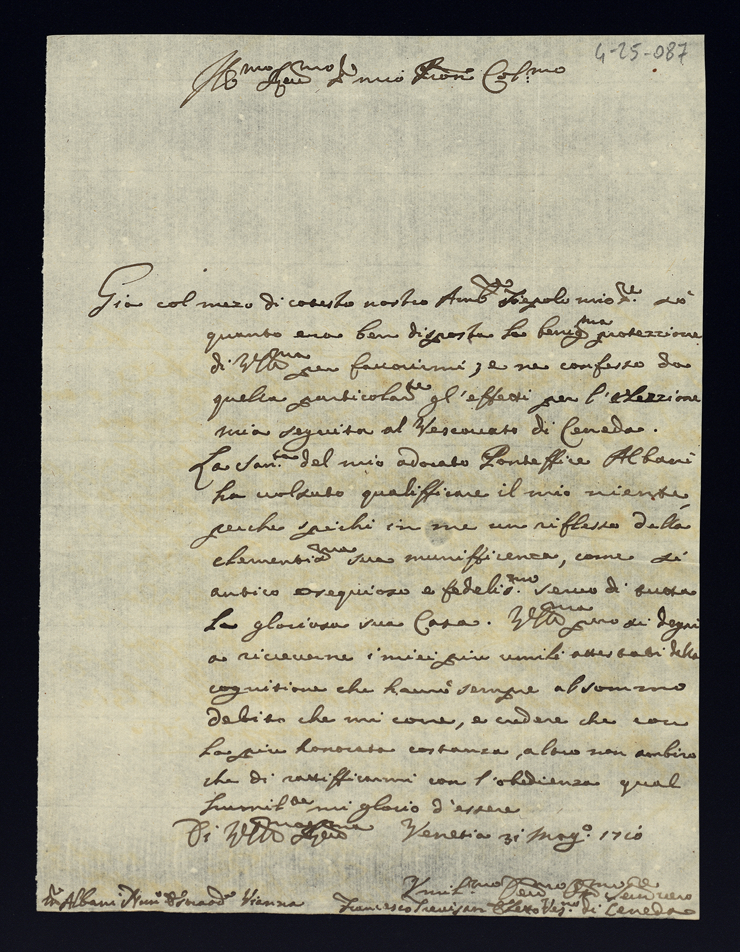 4-25-087
Ill.mo Sig.r mio Pron Col.mo
Gia col mezo di cotesto nostro Amb.r Tiepolo mio sò
quanto era ben disposta la benig.ma protezzione
di V.S. Ill.ma per fauorirmi, e ne confesso da
quella particolar.te gl'effetti per l'elezzione
mia seguita al Vescouato di Ceneda.
La San.tà del mio adorato Ponteffice Albani
ha uoluto qualifficare il mio niente,
perche spichi in me un riflesso della
clementis.ma sua munifficenza, come di
antico ossequioso e fedelis.mo seruo di tutta
la gloriosa sua Casa. V.S. Ill.ma però si degni
a riceuerne i miei piu umili attestati della
cognitione che haurò sempre al sommo
debito che mi corre, e credere che con
la piu honorata costanza, altro non ambiro
che di rattifficarmi con l'obedienza qual
humil.te mi glorio d'essere
Di V.S. Ill.ma Venetia 31 Mag.o 1710
Vmil.mo seruo uero
Albani Nun.o Vienna Francesco Treuisan Eletto Ves.o di Ceneda